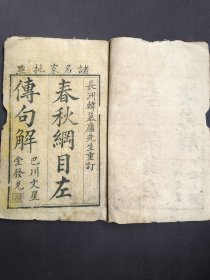 諸名家批點
長洲韓慕廬先生重訂
春秋綱目左
傳句解
巴川文星
堂發兌